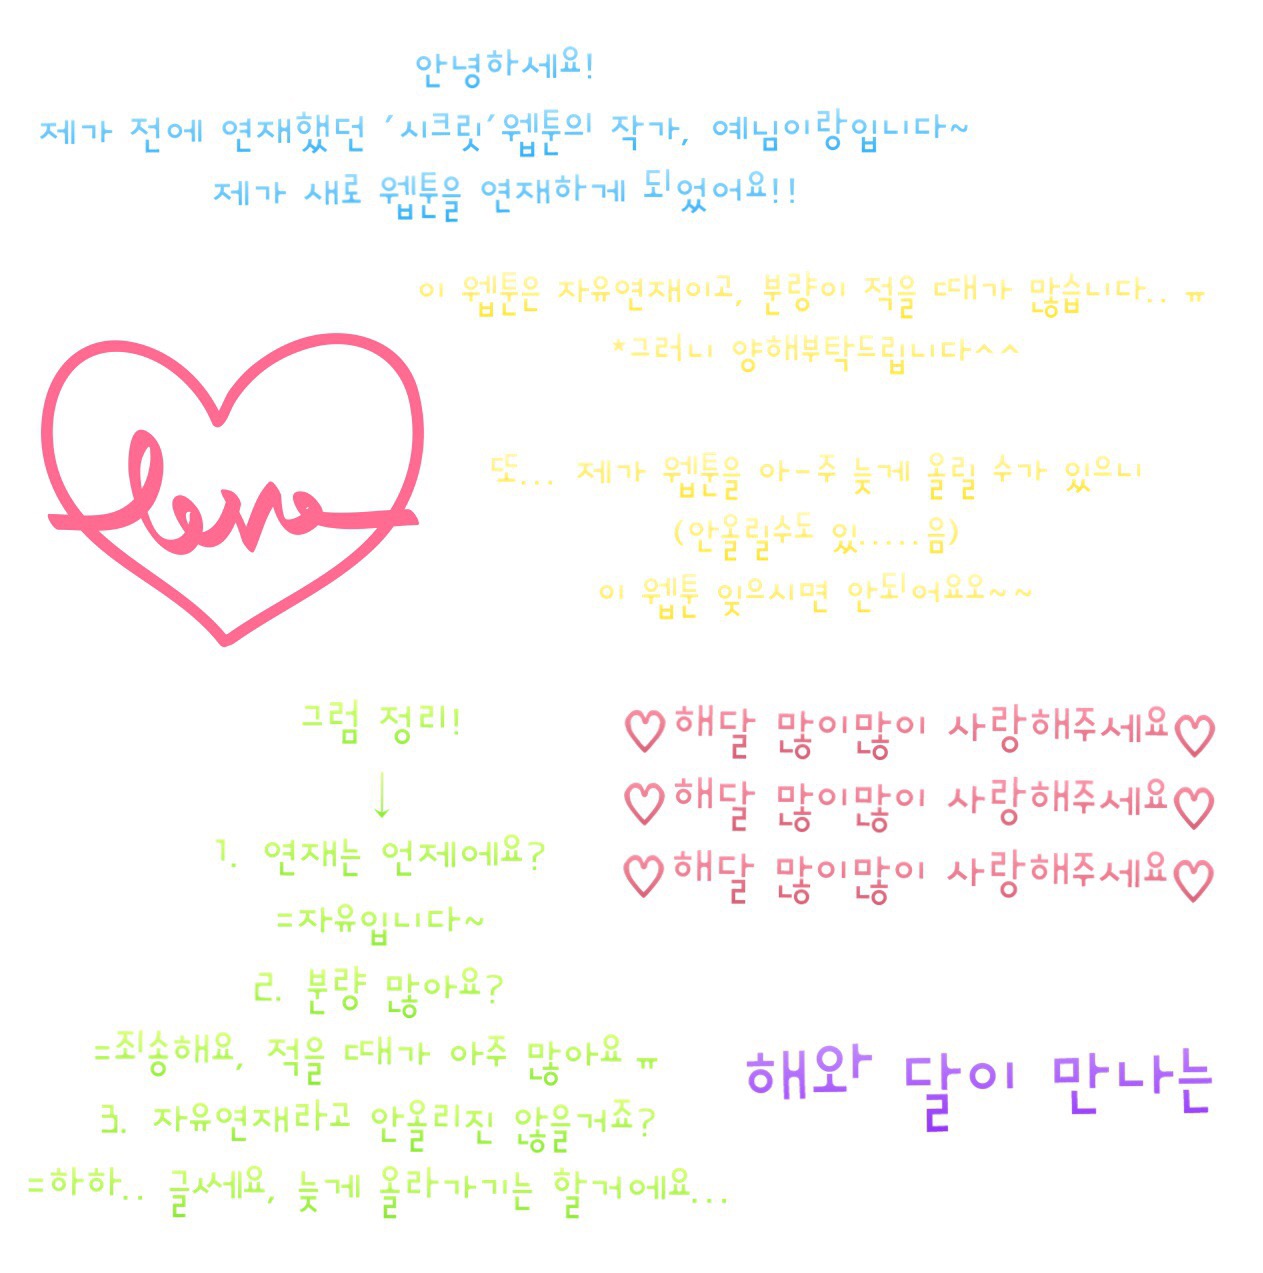 안녕하세요!
제가 전에 연재했던 '시크릿'웹툰의 작가, 예님이랑입니다~
제가 새로 웹툰을 연재하게 되었어요!!
이 웹툰은 자유연재이고, 분량이 적을 때가 많습니다.. ㅠ
*그러니 양해부탁드립니다^^
또... 제가 웹툰을 아-주 늦게 올릴 수가 있으니
(안올릴수도 있.....음)
이 웹툰 잊으시면 안되어요오~~
love
그럼 정리!
↓
1. 연재는 언제에요?
=자유입니다~
2. 분량 많아요?
=죄송해요, 적을 때가 아주 많아요ㅠ
3. 자유연재라고 안올리진 않을거죠?
=하하.. 글쎄요, 늦게 올라가기는 할거에요...
♡해달 많이많이 사랑해주세요♡
♡해달 많이많이 사랑해주세요♡
♡해달 많이많이 사랑해주세요♡
해와 달이 만나는